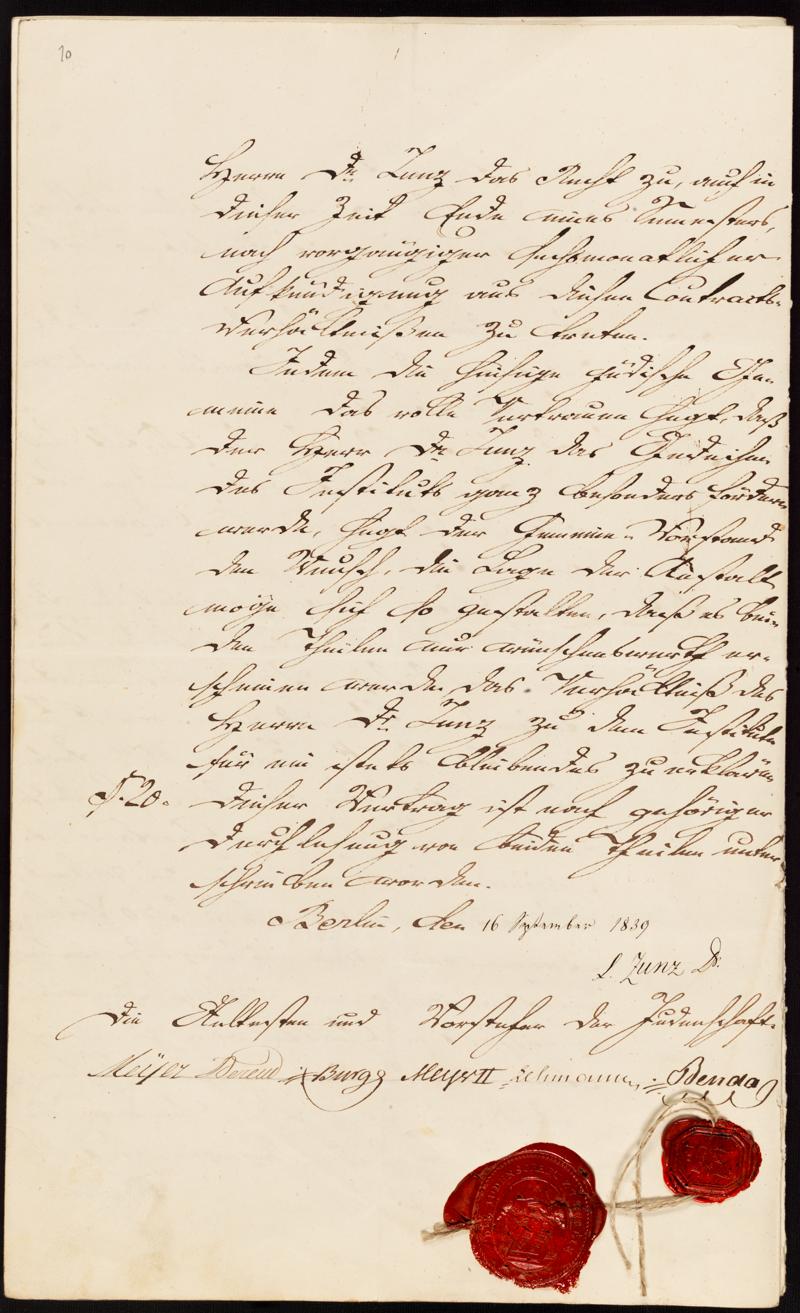 10
Herrn Dr Zunz das Recht zu, auch in
dieser Zeit Ende eines Semesters,
nach vorgängiger sechsmonatlicher
Aufkündigung aus diesen Contracts-
verhältnißen zu treten.
Indem die hiesige jüdische Ge-
meine das volle Vertrauen hegt, daß
der Herr Dr Zunz das Gedeihen
des Instituts ganz besonders fördern
werde, hegt der Gemeine-Vorstand
den Wunsch, die Lage der Anstalt
möge sich so gestalten, daß es bei-
den Theilen nur wünschenswerth er-
scheinen werde das Verhältniß des
Herrn Dr Zunz zu dem Institute
für ein stets bleibendes zu erklären
§. 20. Dieser Vertrag ist nach gehöriger
Durchlesung von beiden Theilen unter-
schrieben worden.
Berlin, den 16 September 1839
L. Zunz Dr.
Die Aeltesten und Vorsteher der Judenschaft.
Meyer Berend Burg Meyer II Lehmann Benda